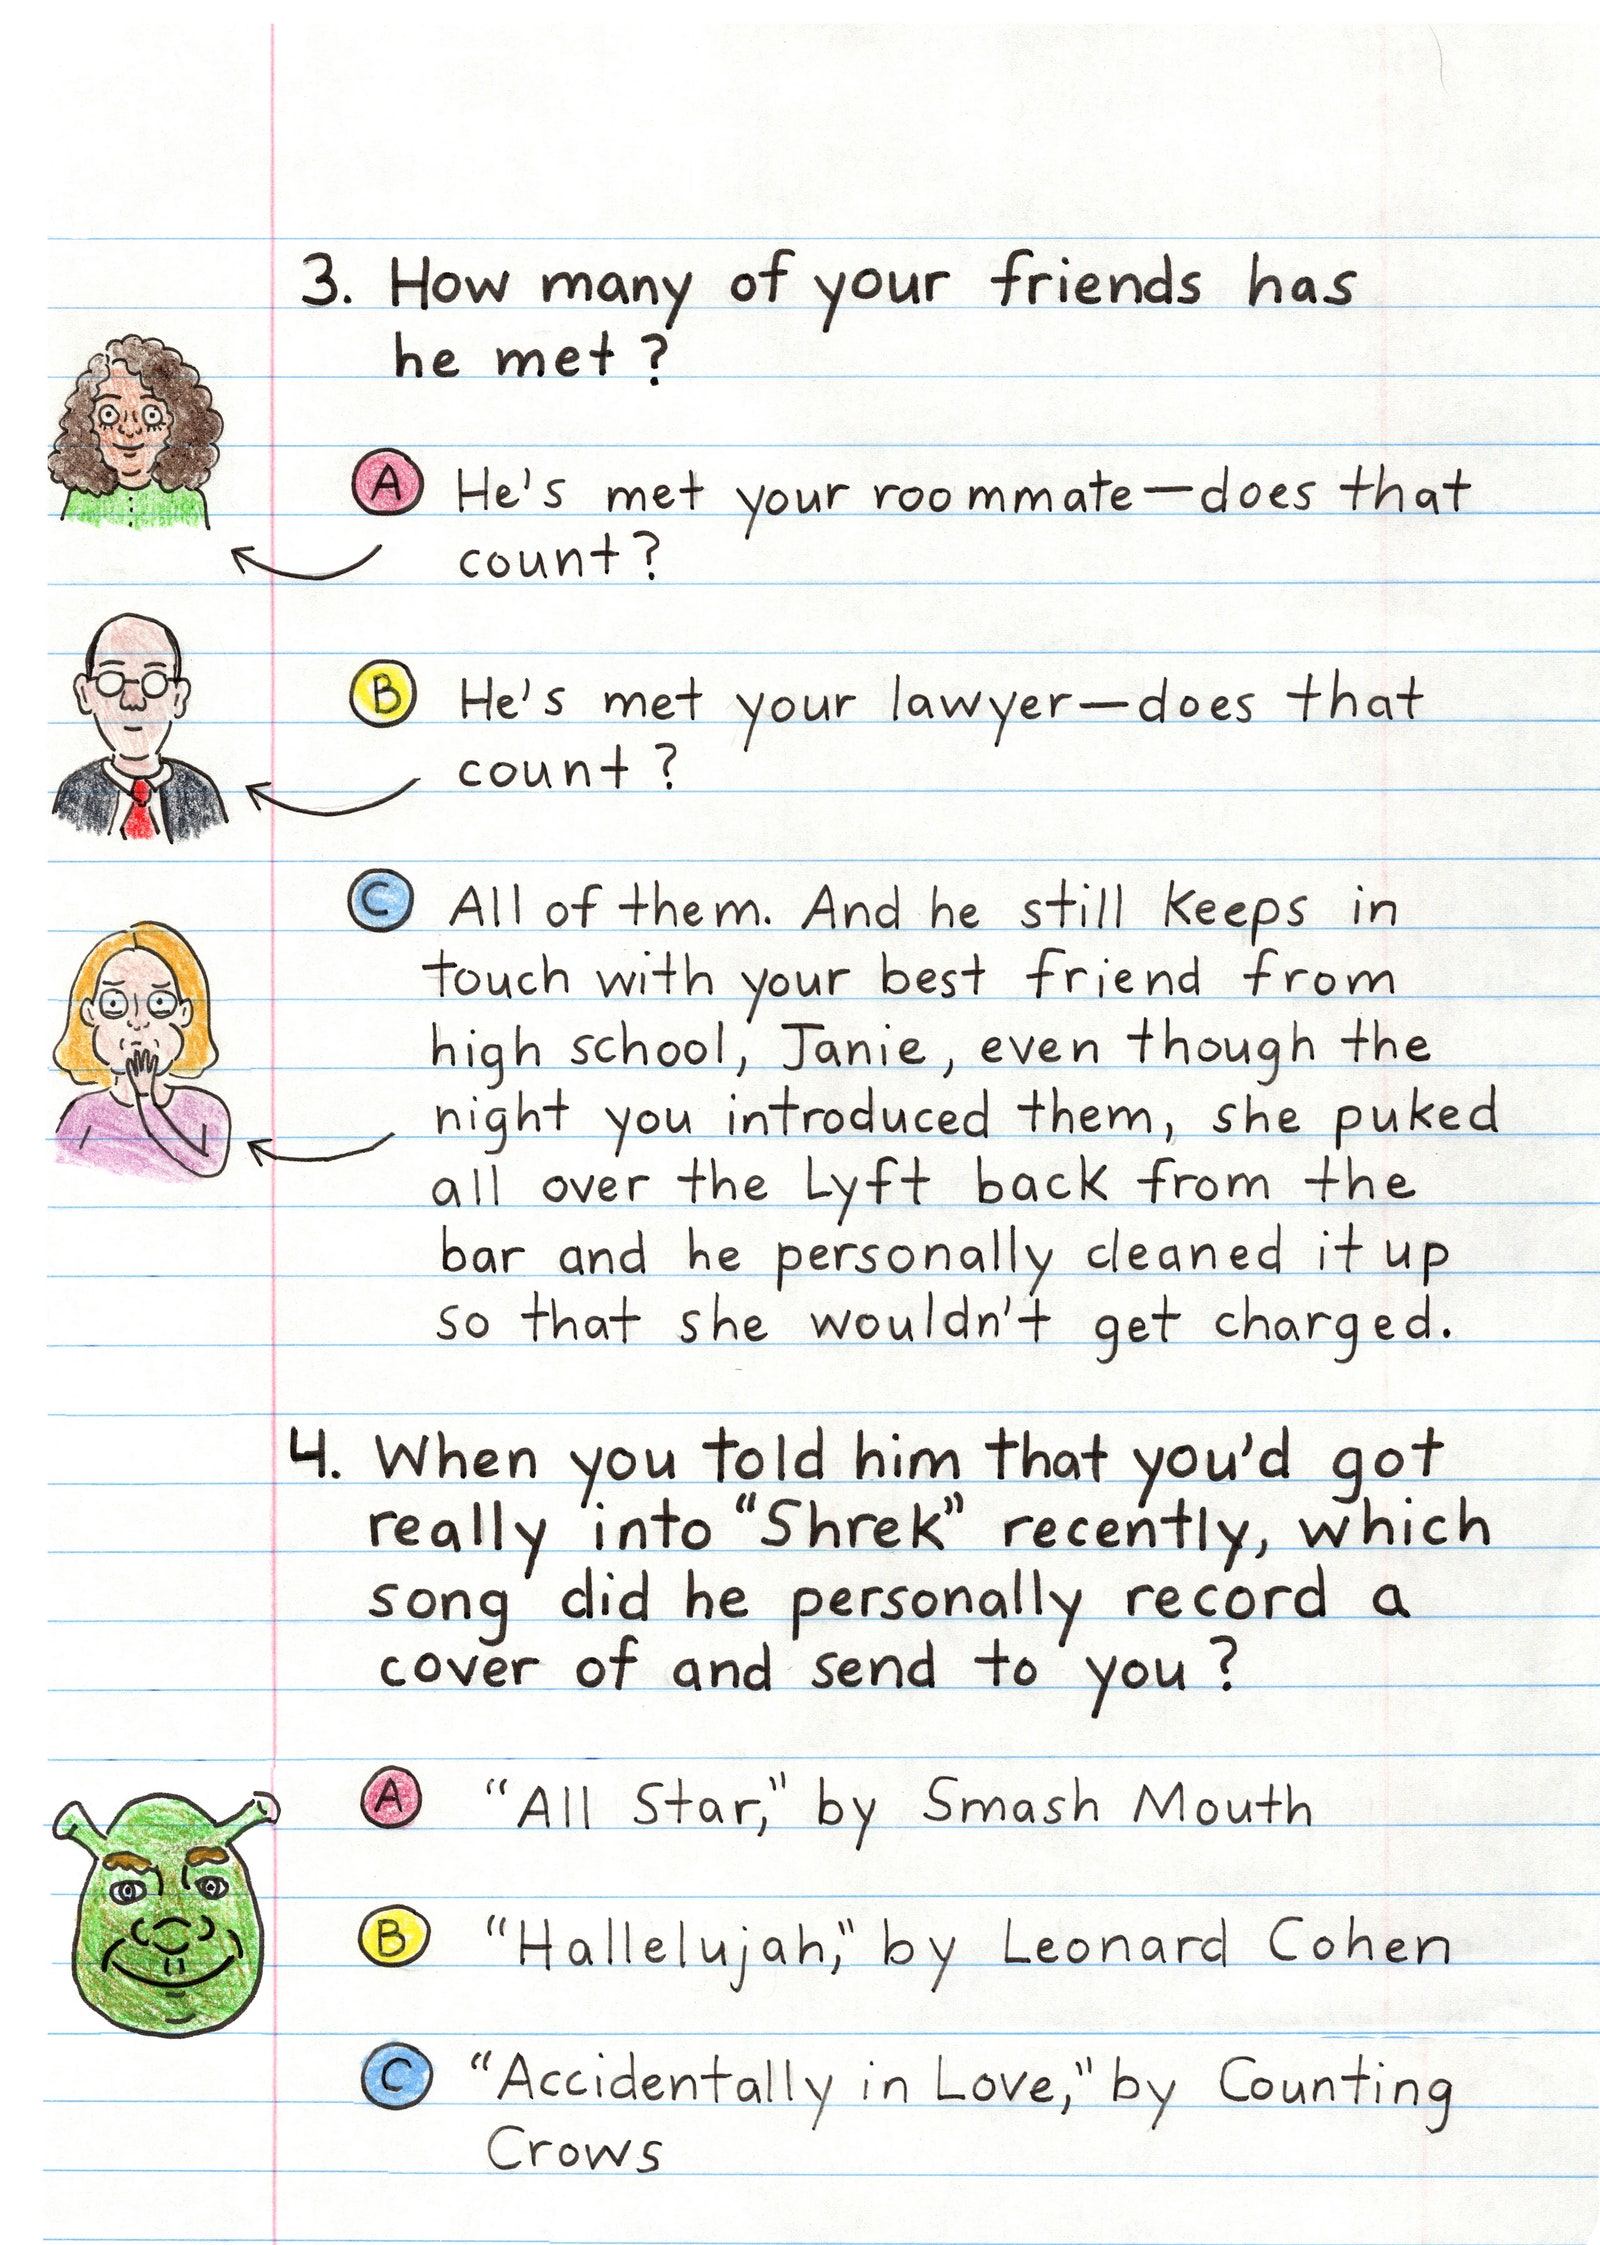 3. How many of your friends has
he met?
A He's met your roommate—does that
count?
B He's met your lawyer—does that
count?
C All of them. And he still keeps in
touch with your best friend from
high school, Janie, even though the
night you introduced them, she puked
all over the Lyft back from the
bar and he personally cleaned it up
so that she wouldn't get charged.
4. When you told him that you'd got
really into "Shrek" recently, which
song did he personally record a
cover of and send to you?
A "All Star," by Smash Mouth
B "Hallelujah," by Leonard Cohen
C "Accidentally in Love," by Counting
Crows